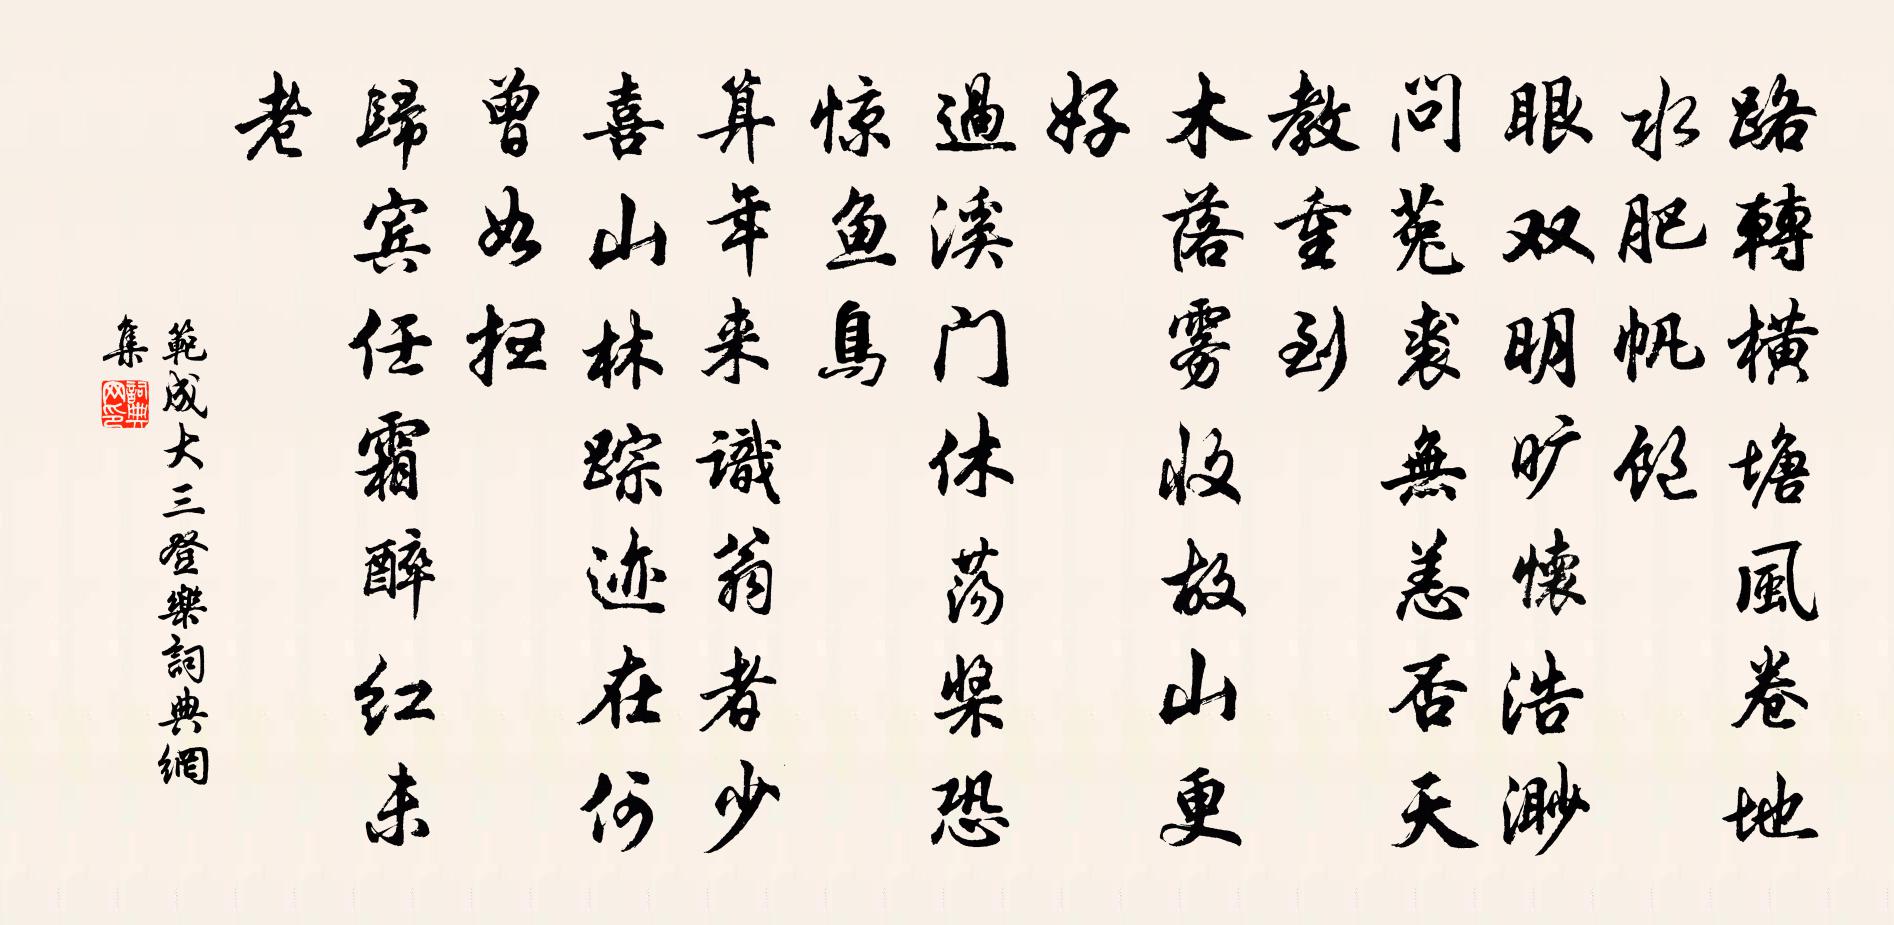 路轉橫塘風卷地
水肥帆飽
眼双明旷懷浩渺
問菟裘無恙否天
教重到
木落雾收故山更
好
過溪门休荡桨恐
惊鱼鳥
算年来識翁者少
喜山林踪迹在何
曾如扫
歸宾任霜醉红未
老
範成大三登樂詞典網
集
詞典网印